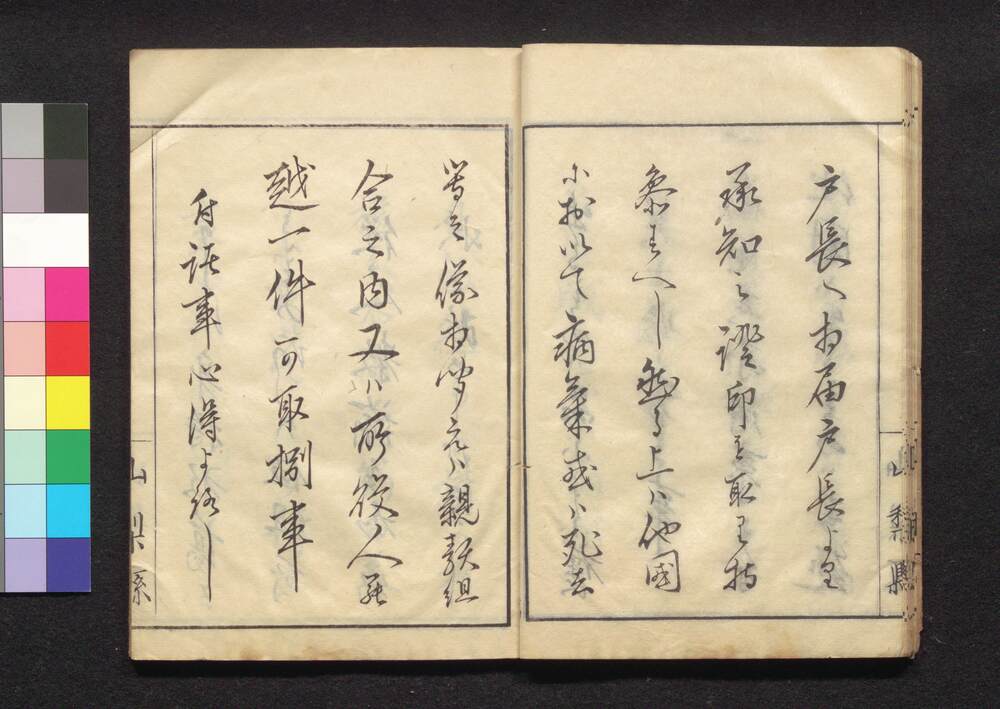 戸長へ相届戸長より
承知之證印を取り持
参すへし然る上ハ他國
におゐて病氣或ハ死去
等之儀相聞候ハ親類組
合之内又ハ所役人罷
越一件可取捌事
付託事心得よろし
山梨縣
山梨縣